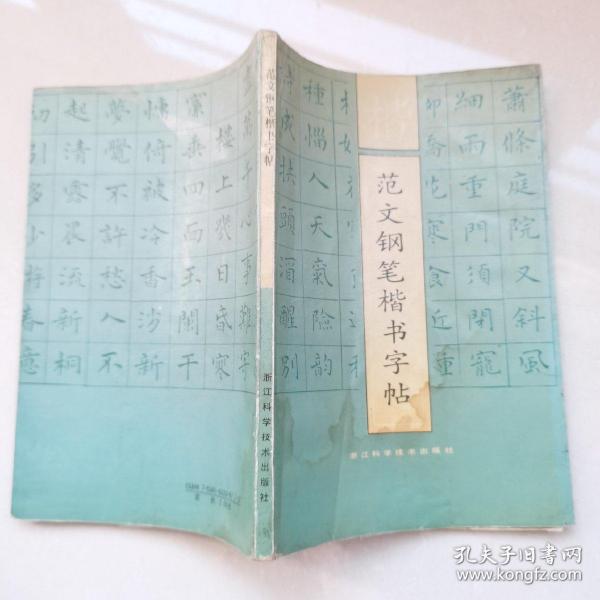 范文钢笔楷书字帖
浙江科学技术出版社
蕭條庭院又斜風
細雨重門須閉寵
花寒食近種
種惱人天氣險韵
詩成扶頭酒醒別
范文钢笔楷书字帖
浙江科学技术出版社
萬千心事難寄
樓上幾日春寒
簾垂四面玉闌干
慵倚被冷香消新
夢覺不許愁人不
起清露晨流新桐
初引多少游春意
孔夫子旧书网
www.kongfz.com